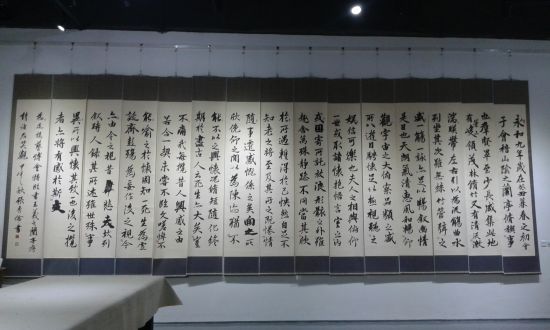 永和九年歲在癸丑暮春之初會
于會稽山陰之蘭亭脩禊事
也群賢畢至少長咸集此地
有峻領茂林脩竹又有清流激
湍暎帶左右引以為流觴曲水
列坐其次雖無絲竹管弦之
盛一觴一詠亦足以暢敘幽情
是日也天朗氣清惠風和暢仰
觀宇宙之大俯察品類之盛
所以遊目騁懷足以極視聽之
娛信可樂也夫人之相與俯仰
一世或取諸懷抱悟言一室之內
或因寄所託放浪形骸之外雖
趣舍萬殊靜躁不同當其欣
於所遇暫得於己快然自足不
知老之將至及其所之既惓情
隨事遷感慨係之矣向之所
欣俛仰之間以為陳迹猶不
能不以之興懷況脩短隨化終
期於盡古人云死生亦大矣豈
不痛哉每攬昔人興感之由
若合一契未嘗不臨文嗟悼不
能喻之於懷固知一死生為虛
誕齊彭殤為妄作後之視今
亦由今之視昔悲夫故列
敘時人錄其所述雖世殊事
異所以興懷其致一也後之攬
者亦將有感於斯文